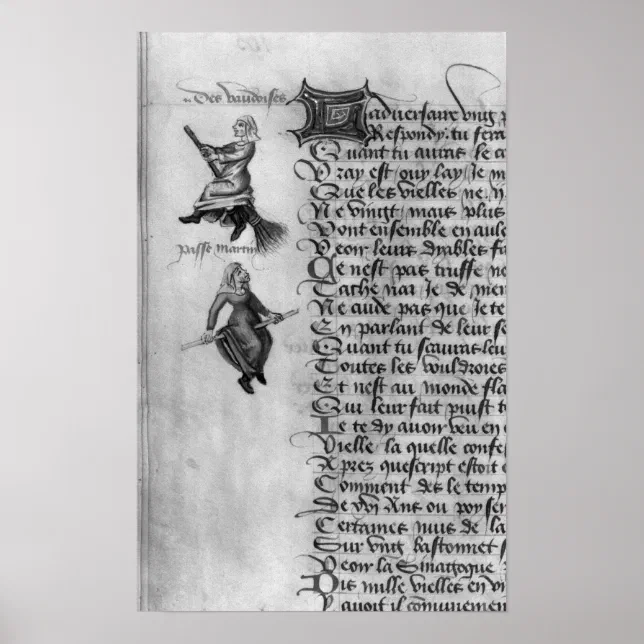 Des vaudoises
passe martin
L adversaire vnit p
Respondy: tu sera
Quant tu auras le c
Vray est ouy lay Je m
Que les vielles ne n
Ne vingt mais plus
Vont ensemble en aule
Veoir leurs dyables fa
Ce nest pas truffe ne
Je de men
Ne aude pas que Je te
En parlant de leur se
Quant tu scauras leu
Toutes les vouldroies
Et nest au monde fla
Qui leur fait puist t
Je te dy auoir veu en
Vielle la quelle confe
Aprez quescript estoit
Comment des le temp
De xvi Ans ou poy sen
Certaines nuis de la
Sur vng bastonnet s
Veoir la Sinagogue
Dix mille vielles en vi
y auoit il communemen